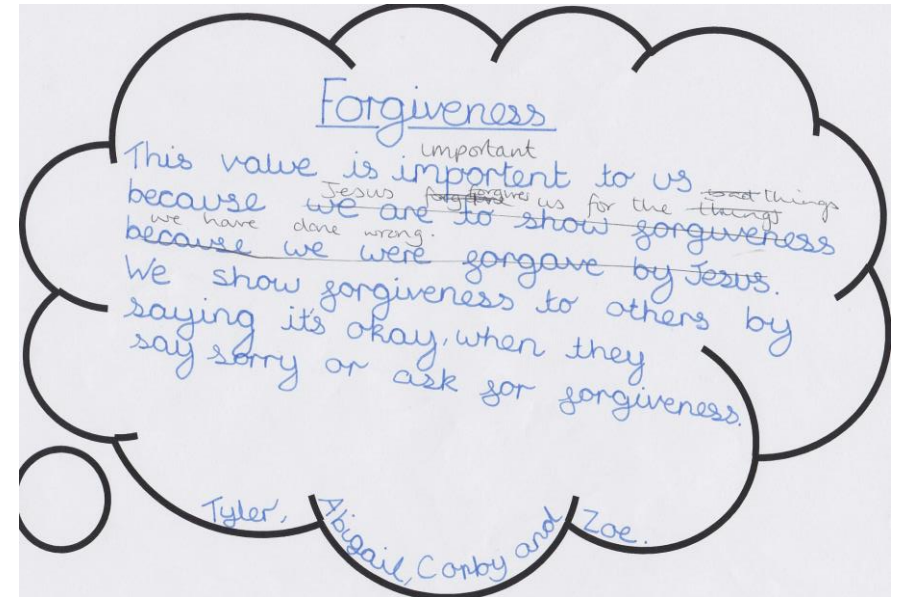 Forgiveness
important
This value is importent to us
Jesus forgive us for the things things
because we are to show forgiveness
we have done wrong.
because we were forgave by Jesus.
We show forgiveness to others by
saying it's okay, when they
say sorry or ask for forgiveness.
Tyler, Abigail, Corby and Zoe.